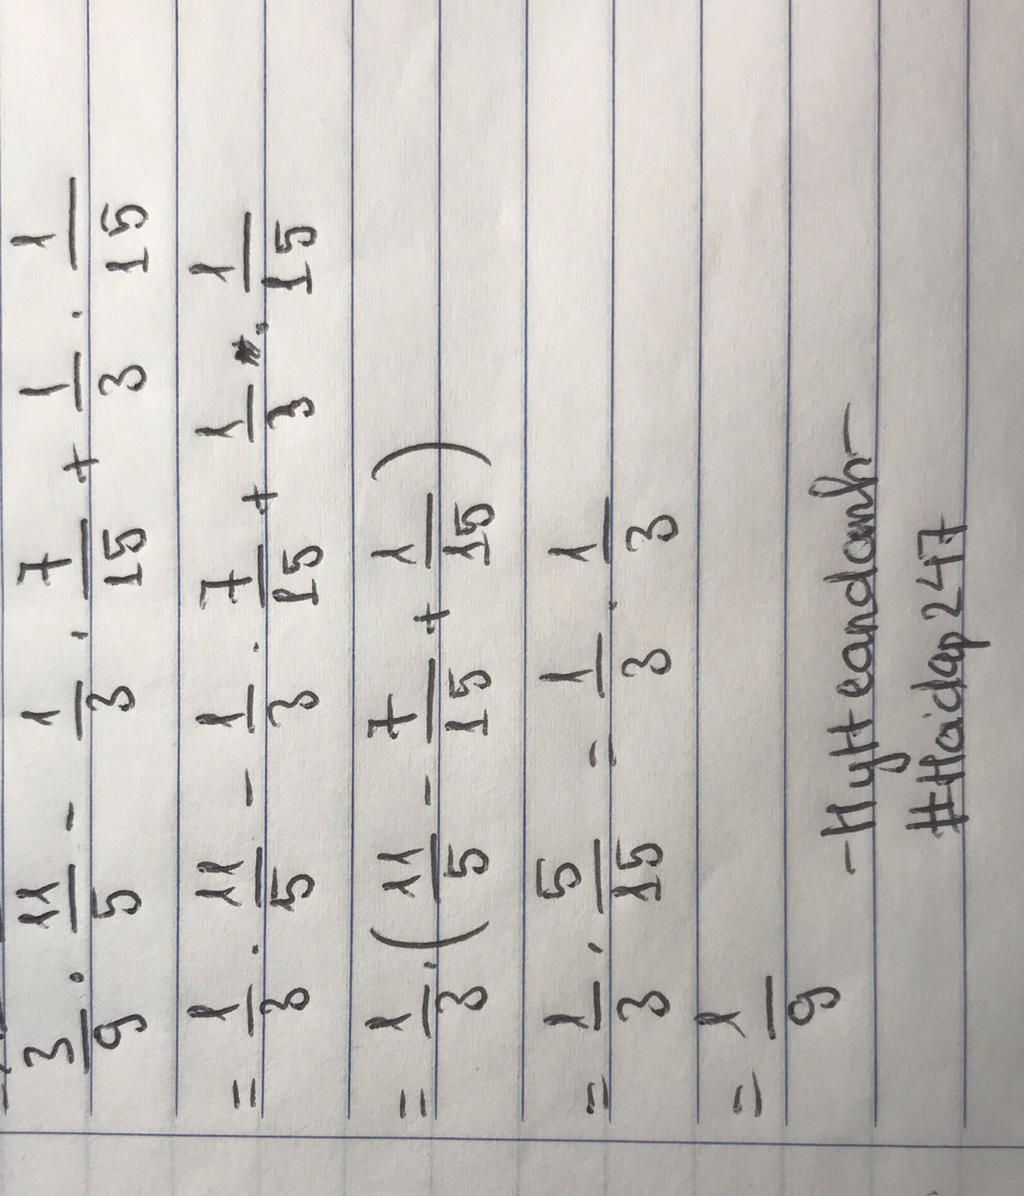 3/9 . 11/5 - 1/3 . 7/15 + 1/3 . 1/15
= 1/3 . 11/5 - 1/3 . 7/15 + 1/3 . 1/15
= 1/3 . (11/5 - 7/15 + 1/15)
= 1/3 . 5/15 = 1/3 . 1/3
= 1/9
-Hytteandanh-
#Hoidap247